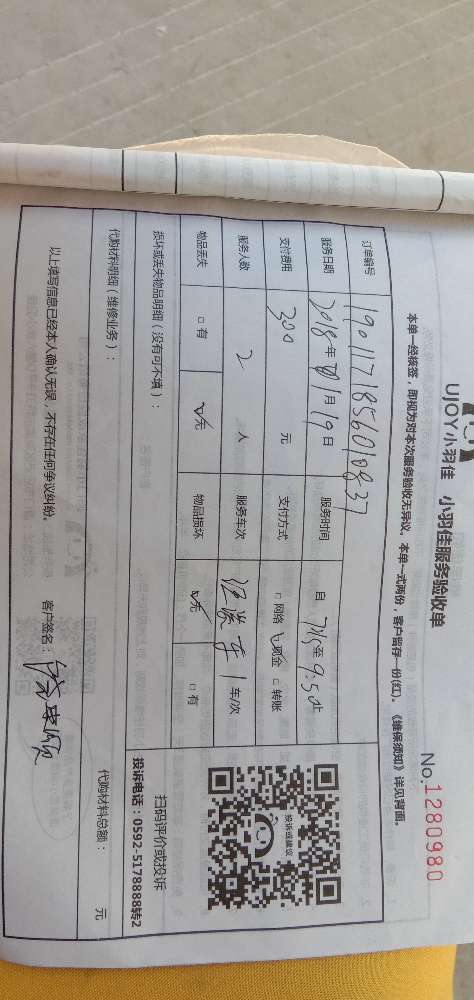 UJOY小羽佳 小羽佳服务验收单
No.1280980
本单一经核签，即视为对本次服务验收无异议。本单一式两份，客户留存一份(红)。《维保须知》详见背面。
订单编号 190117185601837
服务日期 2018年 1月19日 服务时间 自 7:15至9:50止
支付费用 300 元 支付方式 □网络 ☑现金 □转账
服务人数 2 人 服务车次 1 车/次
物品丢失 □有 ☑无 物品损坏 ☑无 □有
损坏或丢失物品明细（没有可不填）：
代购材料明细（维修业务）：
代购材料总额： 元
以上填写信息已经本人确认无误，不存在任何争议纠纷。 客户签名：
投诉或建议
扫码评价或投诉
投诉电话：0592-5178888转2